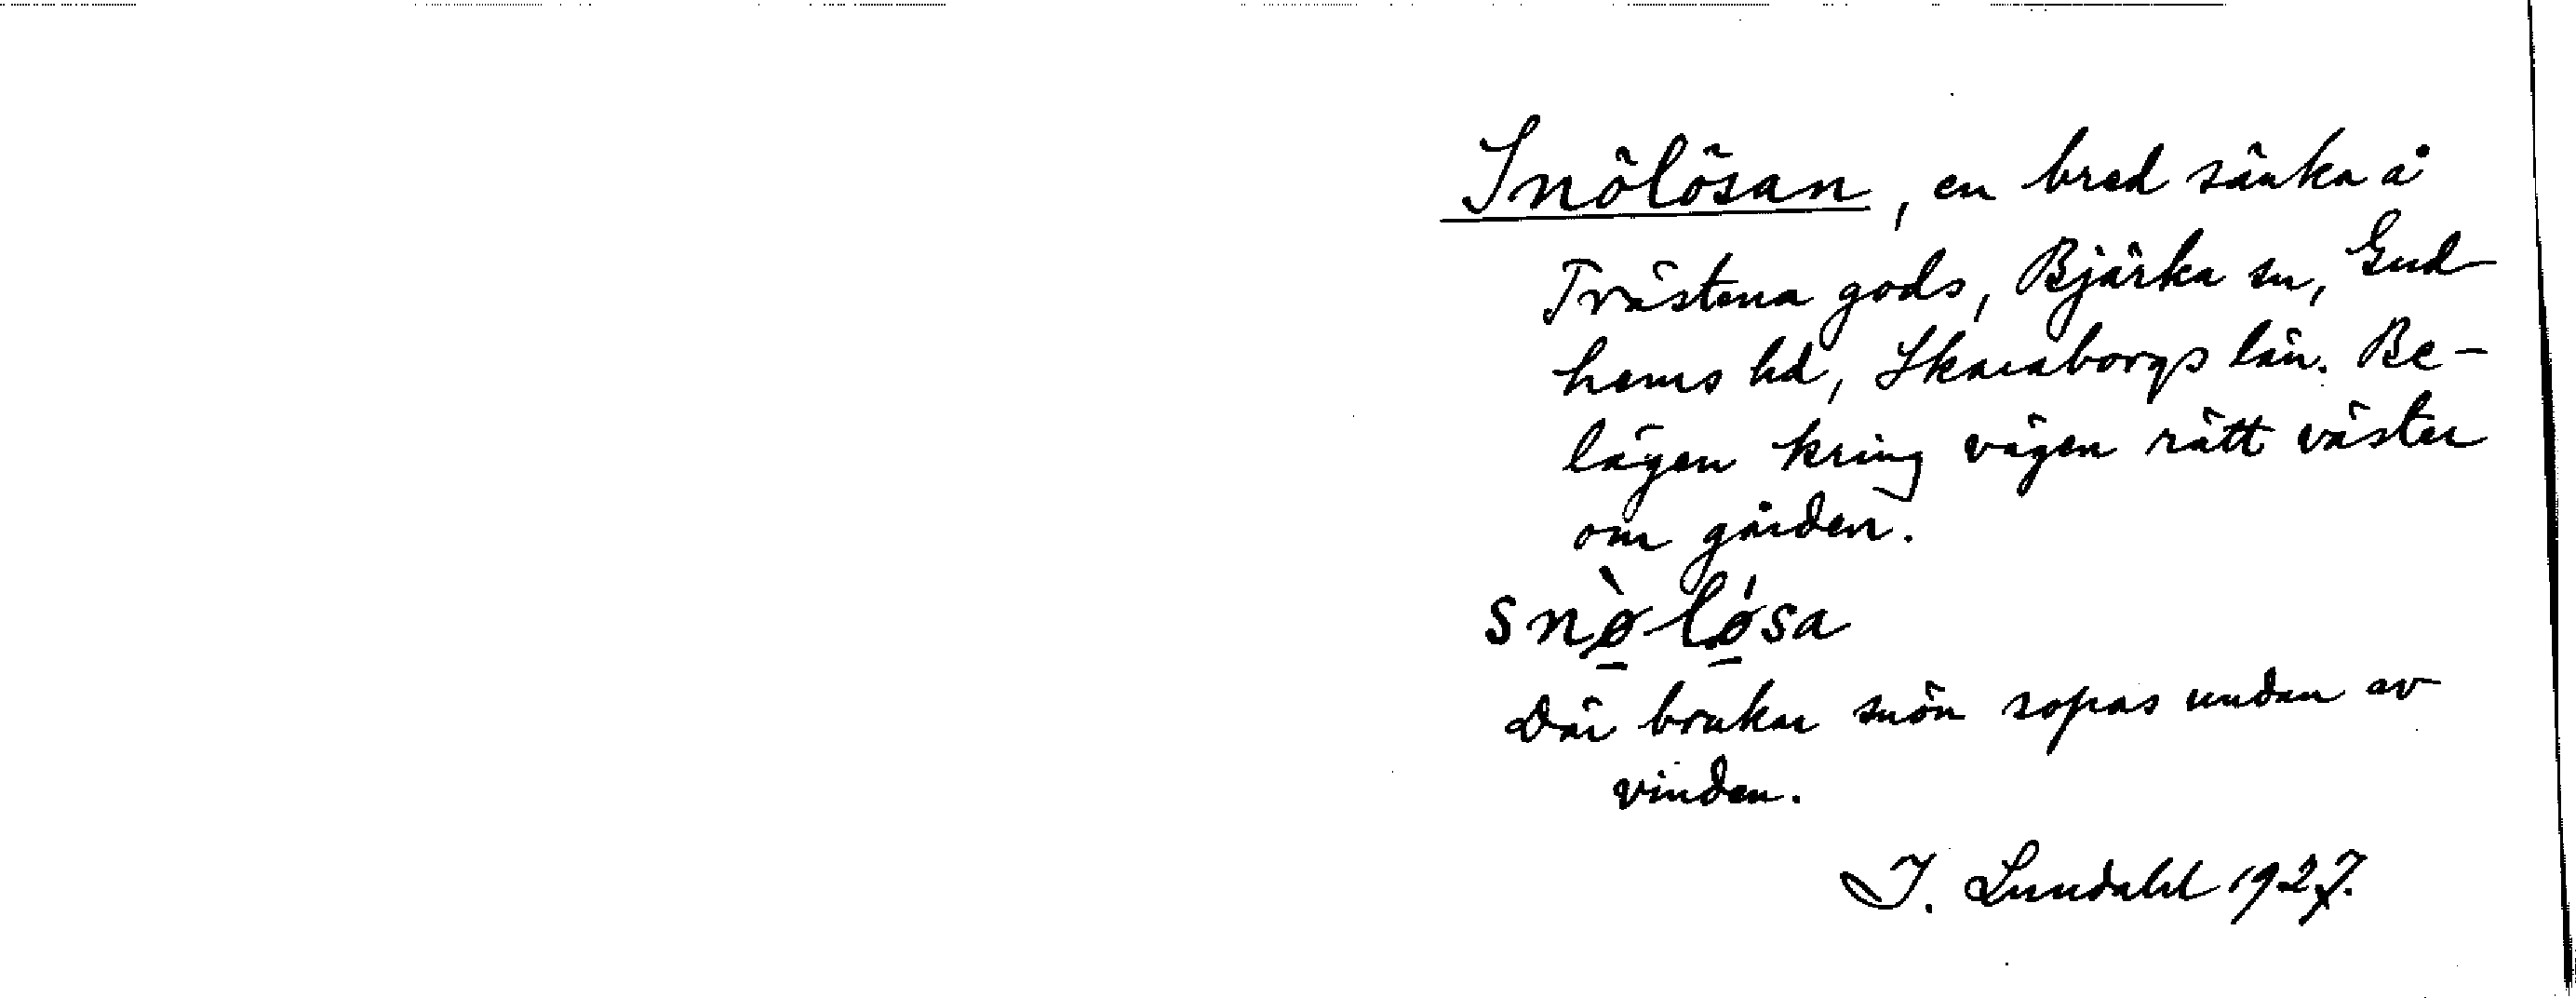 Snölösan, en bred sänka å
Trästena gods, Bjärka sn, Gud
hems hd, Skaraborgs län. Be-
lägen kring vägen rätt väster
om gården.
snø̠̀-lǿ̠sa
Där brukar snön sopas undan av
vinden.
I. Lundahl 1927.